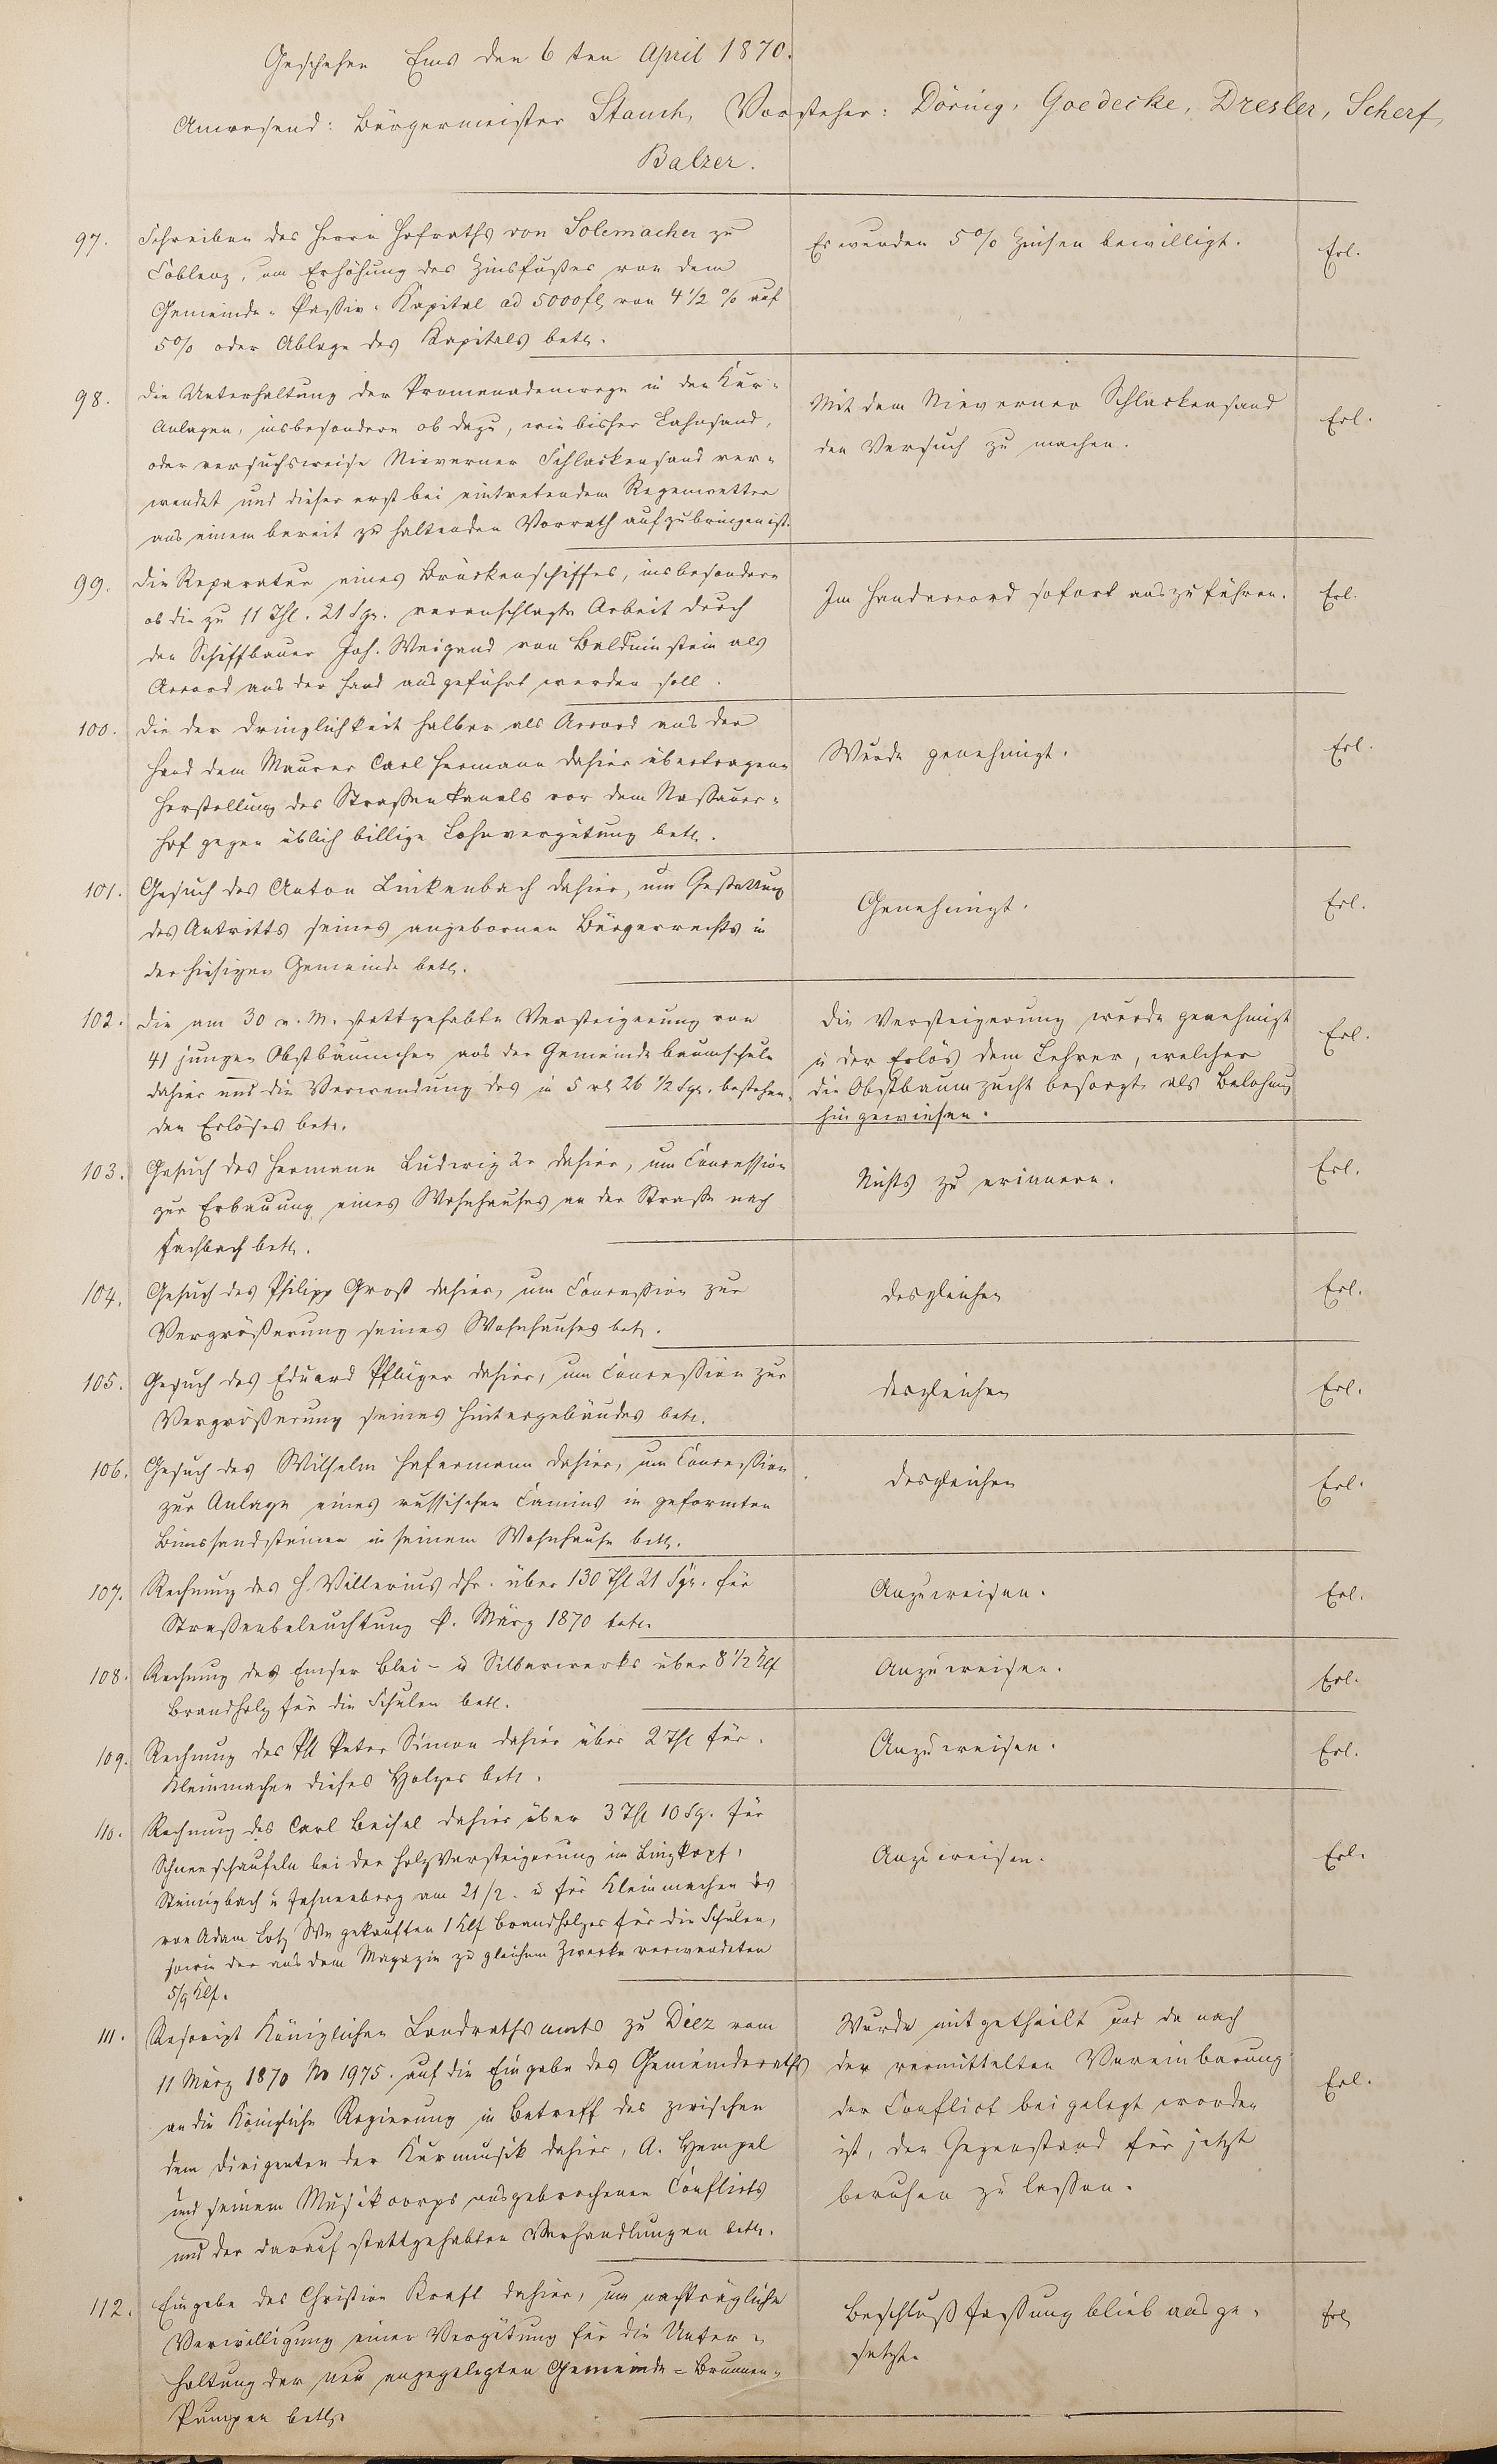 Geschehen Ems den 6ten April 1870.
Anwesend: Bürgermeister Stauch, Vorsteher: Döring, Goedecke, Dresler, Scherf,
Balzer.
97. Schreiben des Herrn Hofraths von Solemacher zu
Coblenz, um Erhöhung des Zinsfußes von dem
Gemeinde-Passiv-Kapital ad 5000 fl von 4 1/2 % auf
5% oder Ablage des Kapitals betr.
Es wurden 5% Zinsen bewilligt.
Erl.
98. Die Unterhaltung der Promenadenwege in den Kur-
Anlagen, insbesondere ob dazu, wie bisher Lahnsand,
oder versuchsweise Nieverner Schlackensand ver-
wendet und dieser erst bei eintretendem Regenwetter
aus einem bereit zu haltenden Vorrath aufzubringen ist.
Mit dem Nieverner Schlackensand
den Versuch zu machen.
Erl.
99. Die Reparatur eines Brückenschiffes, insbesondere
ob die zu 11 Thl. 21 Sgr. veranschlagte Arbeit durch
den Schiffbauer Joh. Weigand von Balduinstein als
Accord aus der Hand ausgeführt werden soll.
Im Handaccord sofort auszuführen.
Erl.
100. Die der Dringlichkeit halber als Accord aus der
Hand dem Maurer Carl Hermann dahier übertragene
Herstellung des Straßenkanals vor dem Nassauer-
Hof gegen üblich billige Lohnvergütung betr.
Wurde genehmigt.
Erl.
101. Gesuch des Anton Linkenbach dahier, um Gestattung
des Antritts seines angebornen Bürgerrechts in
der hiesigen Gemeinde betr.
Genehmigt.
Erl.
102. Die am 30 v. M. stattgehabte Versteigerung von
41 jungen Obstbäumchen aus der Gemeindebaumschule
dahier und die Verwendung des in 5 rt 26 1/2 Sgr. bestehen-
den Erlöses betr.
Die Versteigerung wurde genehmigt
u der Erlös dem Lehrer, welcher
die Obstbaumzucht besorgt, als Belohnung
hingewiesen.
Erl.
103. Gesuch des Hermann Ludwig 2r dahier, um Concession
zur Erbauung eines Wohnhauses an der Straße nach
Fachbach betr.
Nichts zu erinnern.
Erl.
104. Gesuch des Philipp Groß dahier, um Concession zur
Vergrößerung seines Wohnhauses betr.
desgleichen
Erl.
105. Gesuch des Eduard Pflüger dahier, um Concession zur
Vergrößerung seines Hintergebäudes betr.
desgleichen
Erl.
106. Gesuch des Wilhelm Hafermann dahier, um Concession
zur Anlage eines russischen Camins in geformten
Bimssandsteinen in seinem Wohnhause betr.
desgleichen
Erl.
107. Rechnung des H. Villerius dhr. über 130 Thl 21 Sgr. für
Straßenbeleuchtung p. März 1870 betr.
Anzuweisen.
Erl.
108. Rechnung des Emser Blei- u Silberwerks über 8 1/2 Klf
Brandholz für die Schulen betr.
Anzuweisen.
Erl.
109. Rechnung des Ph Peter Simon dahier über 2 Thl für
Kleinmachen dieses Holzes betr.
Anzuweisen.
Erl.
110. Rechnung des Carl Beisel dahier über 3 Thl 10 Sg. für
Schneeschaufeln bei der Holzversteigerung im
u am 21/2. u für Kleinmachen des
von Adam Lotz We gekauften 1 Klf Brandholzes für die Schulen,
sowie der aus dem Magazin zu gleichem Zwecke verwendeten
5/9 Klf.
Anzuweisen.
Erl.
111. Rescript Königlichen Landrathsamts zu Diez vom
11 März 1870 No 1975. auf die Eingabe des Gemeinderaths
an die Königliche Regierung in Betreff des zwischen
dem Dirigenten der Kurmusik dahier, A. Hempel
und seinem Musikcorps ausgebrochenen Conflicts
und der darauf stattgehabten Verhandlungen betr.
Wurde mitgetheilt und da nach
der vermittelten Vereinbarung
der Conflict beigelegt worden
ist, den Gegenstand für jetzt
beruhen zu lassen.
Erl.
112. Eingabe des Christian Kraft dahier, um nachträgliche
Verwilligung einer Vergütung für die Unter-
haltung der neu angegelegten Gemeinde-Brunnen-
Pumpen betr.
Beschlußfassung blieb ausge-
setzt.
Erl